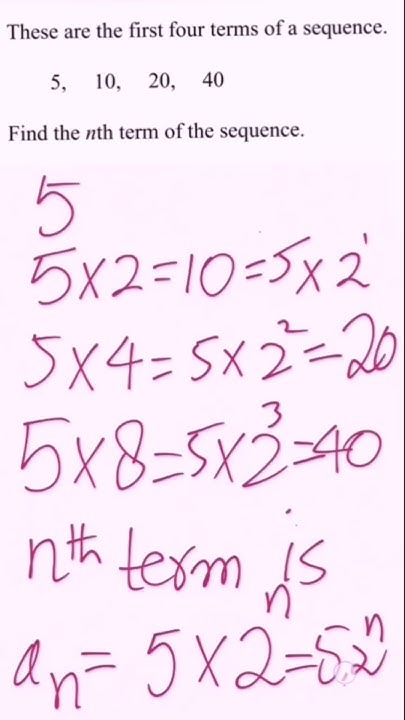 These are the first four terms of a sequence.
5, 10, 20, 40
Find the nth term of the sequence.
5
5×2=10=5×2¹
5×4=5×2²=20
5×8=5×2³=40
nth term is
aₙ=5×2ⁿ=5·2ⁿ